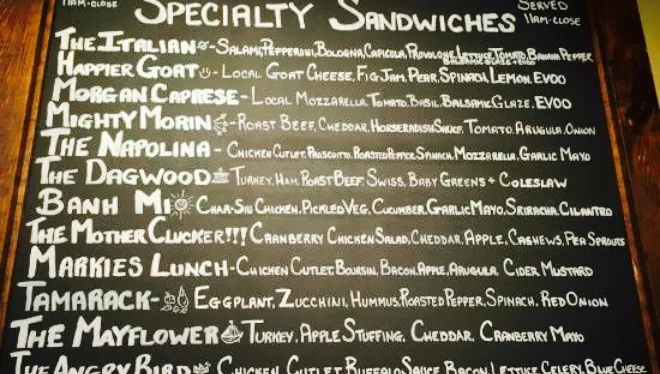 11AM-CLOSE
SPECIALTY SANDWICHES
SERVED
11AM-CLOSE
THE ITALIAN - SALAMI, PEPPERONI, BOLOGNA, CAPICOLA, PROVOLONE, LETTUCE, TOMATO, BANANA PEPPER,
BALSAMIC GLAZE + EVOO
HAPPIER GOAT - LOCAL GOAT CHEESE, FIG JAM, PEAR, SPINACH, LEMON, EVOO
MORGAN CAPRESE - LOCAL MOZZARELLA, TOMATO, BASIL, BALSAMIC GLAZE, EVOO
MIGHTY MORIN - ROAST BEEF, CHEDDAR, HORSERADISH SAUCE, TOMATO, ARUGULA, ONION
THE NAPOLINA - CHICKEN CUTLET, PROSCUITTO, ROASTED PEPPER, SPINACH, MOZZARELLA, GARLIC MAYO
THE DAGWOOD - TURKEY, HAM, ROAST BEEF, SWISS, BABY GREENS + COLESLAW
BANH MI CHAR-SIU CHICKEN, PICKLED VEG, CUCUMBER, GARLIC MAYO, SRIRACHA, CILANTRO
THE MOTHER CLUCKER!!! CRANBERRY CHICKEN SALAD, CHEDDAR, APPLE, CASHEWS, PEA SPROUTS
MARKIES LUNCH - CHICKEN CUTLET, BOURSIN, BACON, APPLE, ARUGULA, CIDER, MUSTARD
TAMARACK - EGGPLANT, ZUCCHINI, HUMMUS, ROASTED PEPPER, SPINACH, RED ONION
THE MAYFLOWER TURKEY, APPLE STUFFING, CHEDDAR, CRANBERRY MAYO
THE ANGRY BIRD CHICKEN CUTLET, BUFFALO SAUCE, BACON, LETTUCE, CELERY, BLUE CHEESE